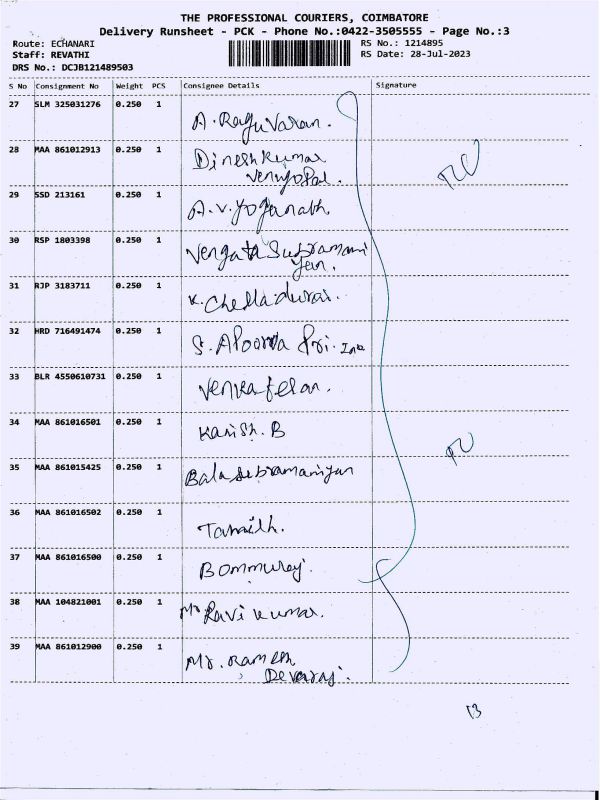 THE PROFESSIONAL COURIERS, COIMBATORE
Delivery Runsheet - PCK - Phone No.:0422-3505555 - Page No.:3
Route: ECHANARI
Staff: REVATHI
DRS No.: DCJB121489503
RS No.: 1214895
RS Date: 28-Jul-2023
S No Consignment No Weight PCS Consignee Details Signature
27 SLM 325031276 0.250 1 A. Raguvaran.
28 MAA 861012913 0.250 1 Dinesh Kumar
Venugopal.
29 SSD 213161 0.250 1 A.V. Yoganath
30 RSP 1803398 0.250 1 Vengata Subramani
yan.
31 RJP 3183711 0.250 1 K. Chelladurai.
32 HRD 716491474 0.250 1 S. Apoorva Pri.
33 BLR 4550610731 0.250 1 Venkatesan.
34 MAA 861016501 0.250 1 Kanish. B
35 MAA 861015425 0.250 1 Balasubramaniyan
36 MAA 861016502 0.250 1
37 MAA 861016500 0.250 1 Bommuraj.
38 MAA 104821001 0.250 1 Mr Ravi Kumar.
39 MAA 861012900 0.250 1 Mr. Ramesh
Devaraj.
13